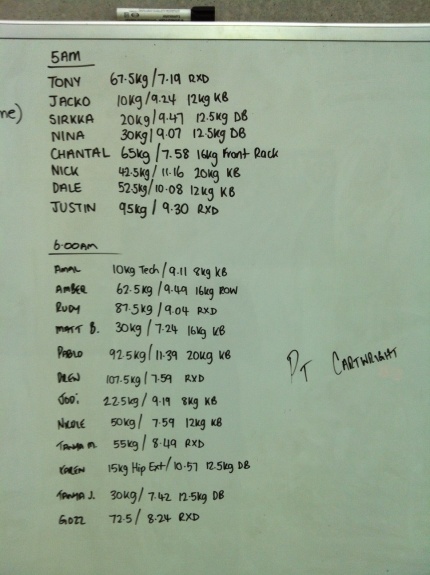 5AM
TONY 67.5kg/7.19 RXD
JACKO 10kg/9.24 12kg KB
SIRKKA 20kg/9.47 12.5kg DB
ne)
NINA 30kg/9.07 12.5kg DB
CHANTAL 65kg/7.58 16kg Front Rack
NICK 42.5kg/11.16 20kg KB
DALE 52.5kg/10.08 12kg KB
JUSTIN 95kg/9.30 RXD
6.00AM
AMAL 10kg Tech/9.11 8kg KB
AMBER 62.5kg/9.49 16kg ROW
RUDY 87.5kg/9.04 RXD
MATT B. 30kg/7.24 16kg KB
PABLO 92.5kg/11.39 20kg KB
DREW 107.5kg/7.59 RXD
JODI 22.5kg/9.19 8kg KB
NICOLE 50kg/7.59 12kg KB
TANYA M. 55kg/8.49 RXD
KAREN 15kg Hip Ext/10.57 12.5kg DB
TANYA J. 30kg/7.42 12.5kg DB
GOZZ 72.5/8.24 RXD
PT CARTWRIGHT